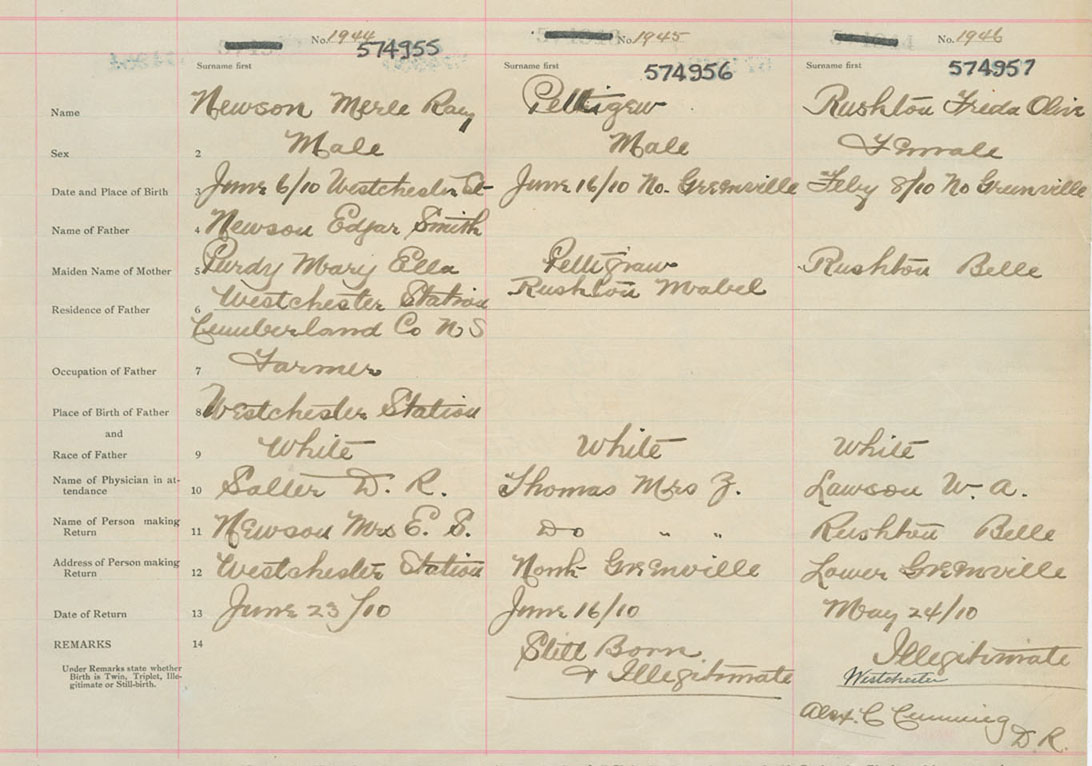 No. 1944 No. 1945 No. 1946
574955 574956 574957
Surname first Surname first Surname first
Name Newson Merle Ray Pettigrew Rushton Frida Olive
Sex 2 Male Male Female
Date and Place of Birth 3 June 6/10 Westchester St June 16/10 No. Greenville Feby 8/10 No Greenville
Name of Father 4 Newson Edgar Smith
Maiden Name of Mother 5 Purdy Mary Ella Pettigraw Rushton Belle
Rushton Mabel
Residence of Father 6 Westchester Station
Cumberland Co N S
Occupation of Father 7 Farmer
Place of Birth of Father 8 Westchester Station
and
Race of Father 9 White White White
Name of Physician in at-
tendance 10 Salter D. R. Thomas Mrs Z. Lawson W. A.
Name of Person making
Return 11 Newson Mrs E. S. Do " " Rushton Belle
Address of Person making
Return 12 Westchester Station North Greenville Lower Greenville
Date of Return 13 June 23/10 June 16/10 May 24/10
REMARKS 14
Under Remarks state whether
Birth is Twin, Triplet, Ille-
gitimate or Still-birth.
Still Born
& Illegitimate
Illegitimate
Westchester
Alex. C Cumming
D. R.